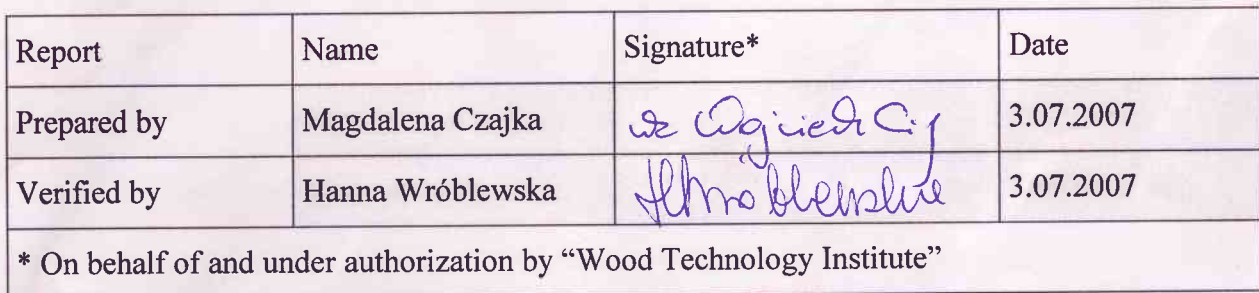 Report Name Signature* Date
Prepared by Magdalena Czajka wz Wojciech 3.07.2007
Verified by Hanna Wróblewska HWróblewska 3.07.2007
* On behalf of and under authorization by “Wood Technology Institute”